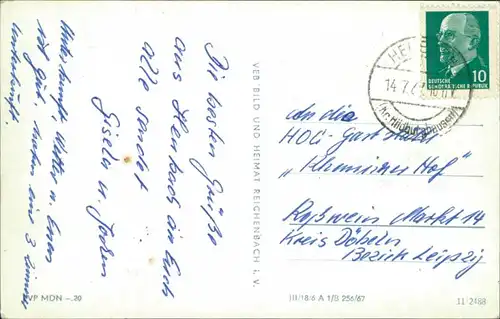 Die besten Grüße
aus Heubach an Euch
alle sendet
Gisela u. Jochen
Unterkunft, Wetter u. Essen
ist gut, haben eine 3 Zimmer
unterkunft.
VEB BILD UND HEIMAT REICHENBACH I. V.
DEUTSCHE
DEMOKRATISCHE REPUBLIK
10
14.7.
(Kr. Hildburghausen)
An die
HOG-Gaststätte
Roßwein Markt 14
Kreis Döbeln
Bezirk Leipzig
EVP MDN -.20
III/18/6 A 1/B 256/67
11/2488